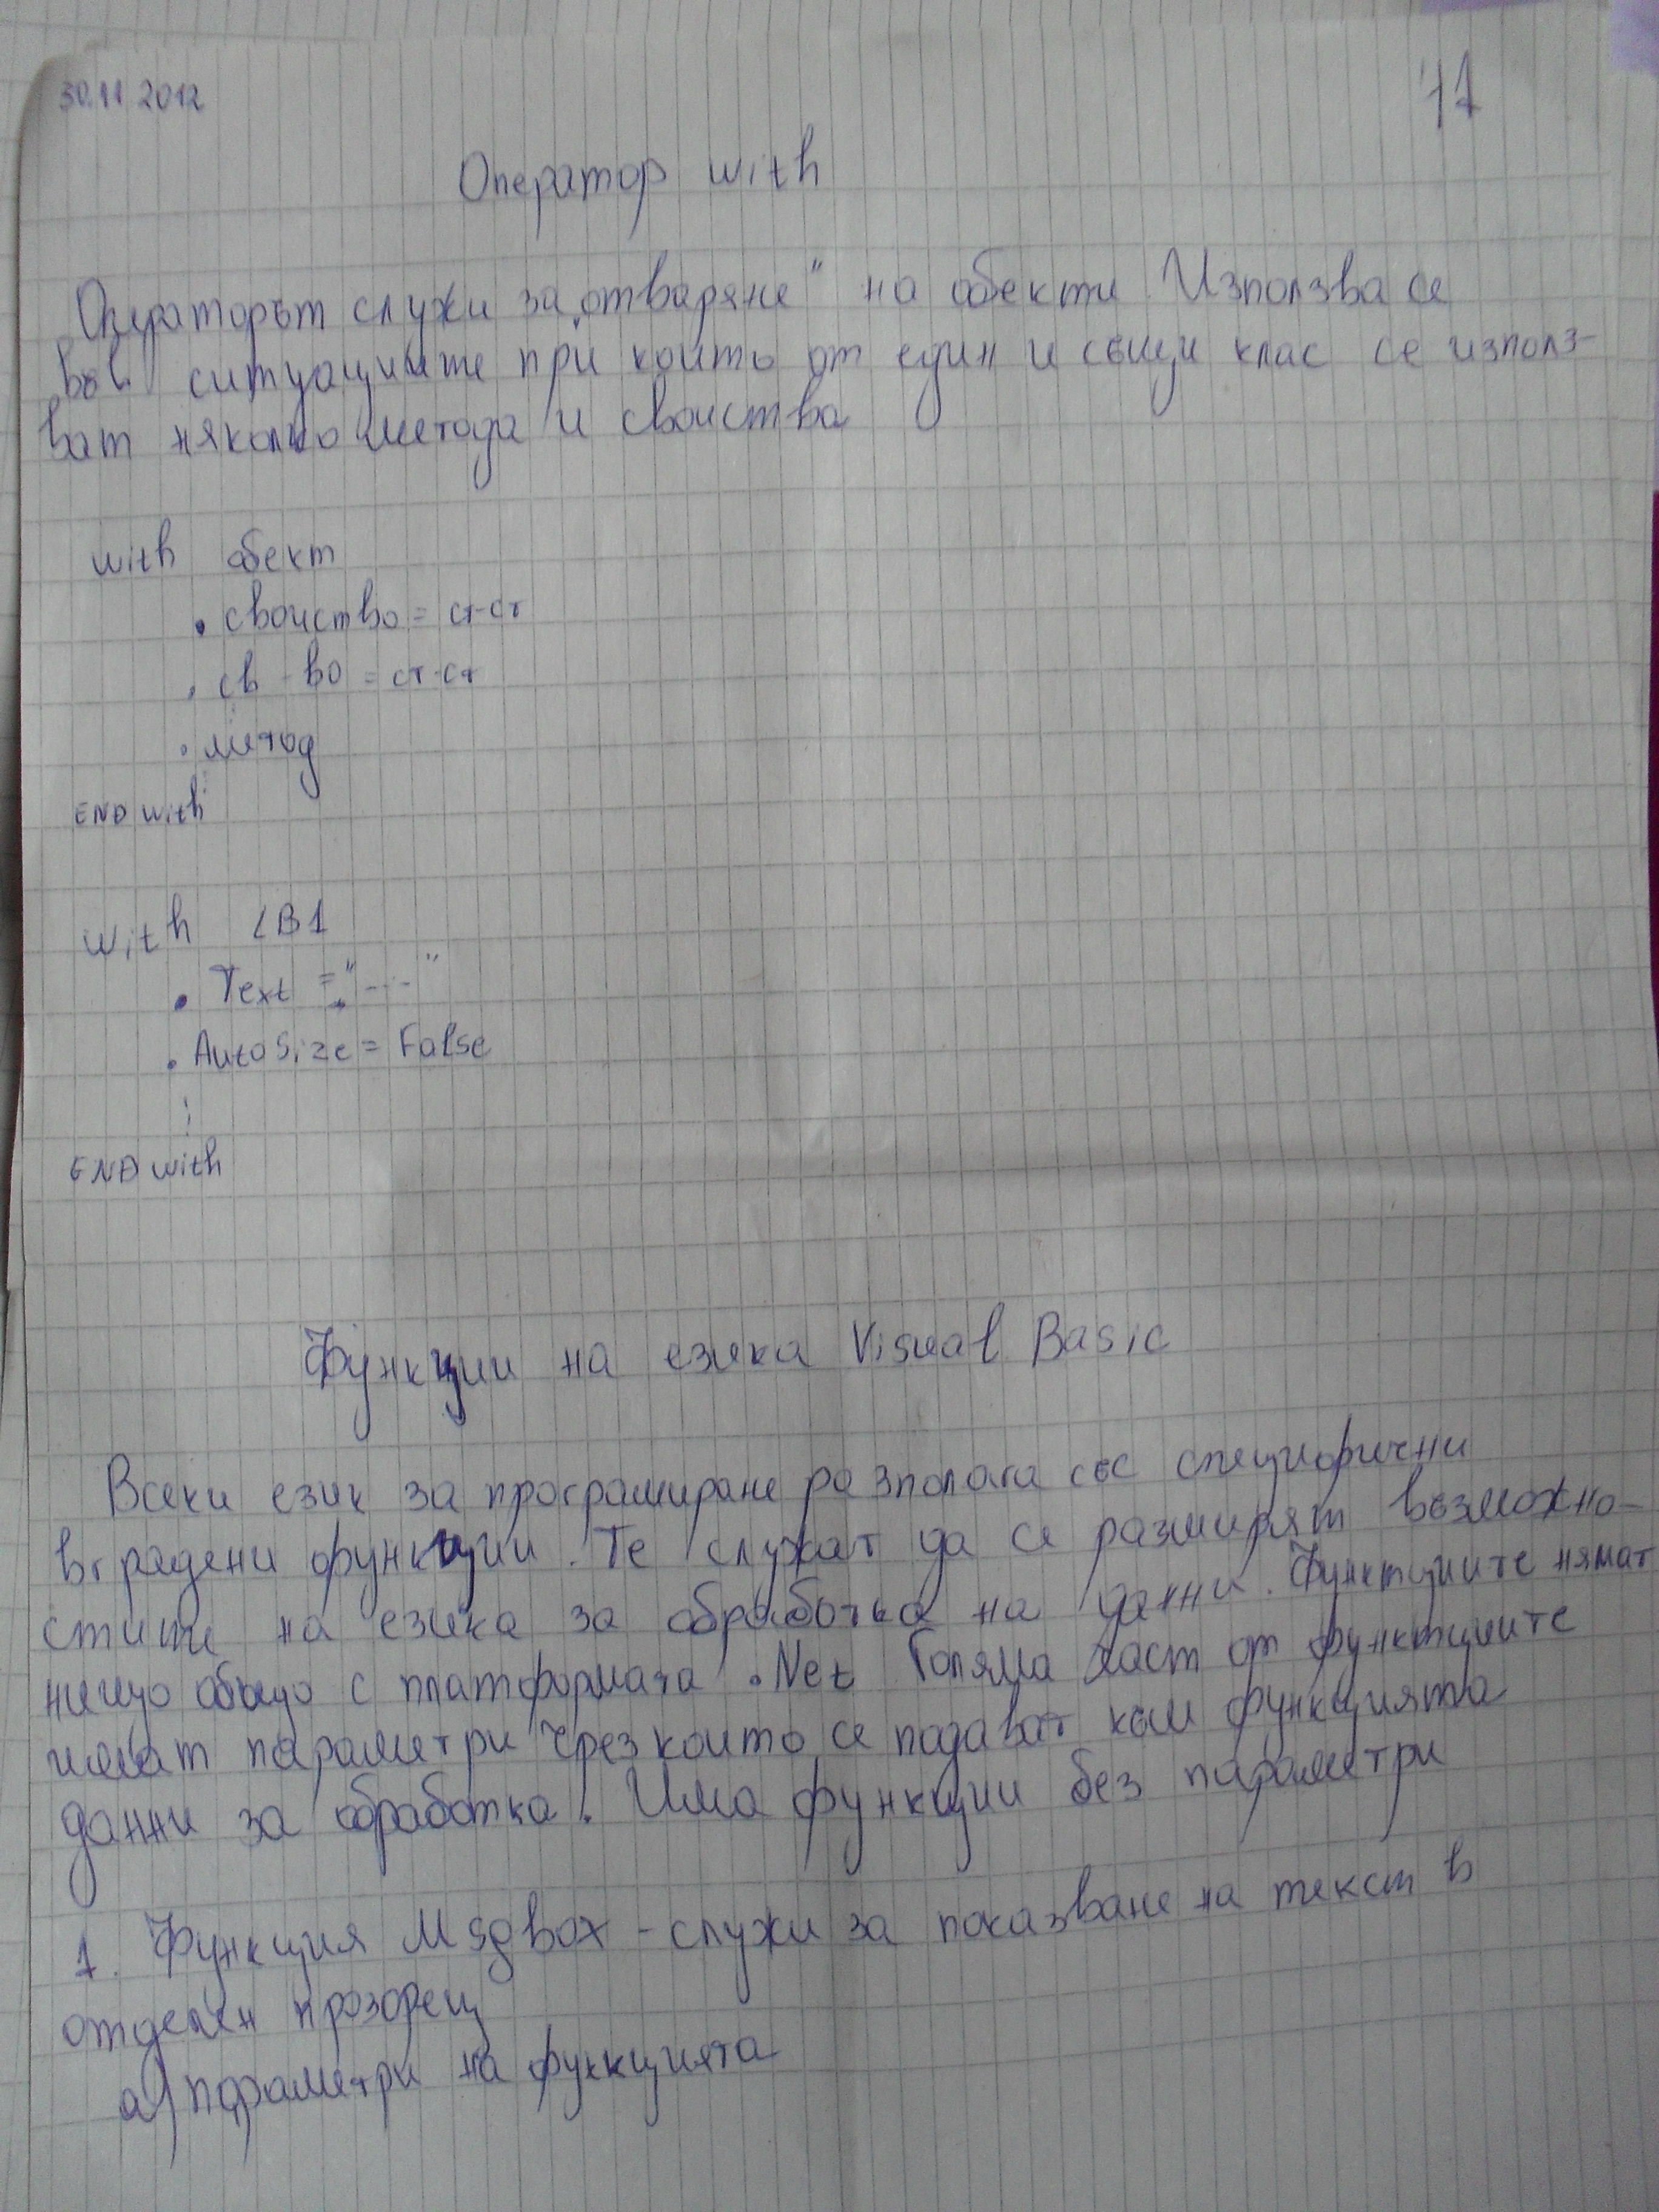 30.11 2012
Оператор with
Операторът служи за „отваряне" на обекти. Използва се
във ситуациите при които от един и същи клас се използ-
ват няколко метода и свойства
with обект
. свойство = ст-ст
. св-во = ст-ст
. метод
END with
with LB1
. Text = "---"
. AutoSize = False
⋮
END with
Функции на езика Visual Basic
Всеки език за програмиране разполага със специфични
вградени функции. Те служат да се разширят възможно-
стите на езика за обработка на данни. Функциите нямат
нищо общо с платформата .Net Голяма част от функциите
имат параметри чрез които се подават към функцията
данни за обработка. Има функции без параметри
1. Функция MsgBox - служи за показване на текст в
отделен прозорец
а) параметри на функцията